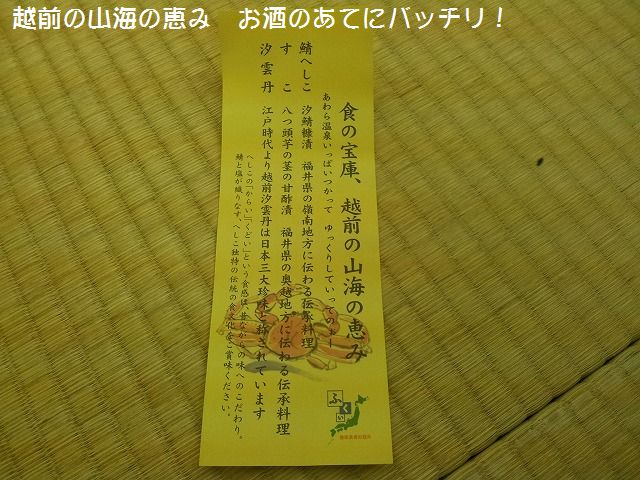 越前の山海の恵み　お酒のあてにバッチリ！
食の宝庫、越前の山海の恵み
あわら温泉いっぱいつかって　ゆっくりしていってのぉー
鯖へしこ　汐鯖糠漬　福井県の嶺南地方に伝わる伝承料理
すこ　八つ頭芋の茎の甘酢漬　福井県の奥越地方に伝わる伝承料理
汐雲丹　江戸時代より越前汐雲丹は日本三大珍味と称されています
へしこの「からい」「くどい」という食感は、昔ながらの味へのこだわり。
鯖と塩が織りなす、へしこ独特の伝統の食文化をご賞味ください。
ふくい